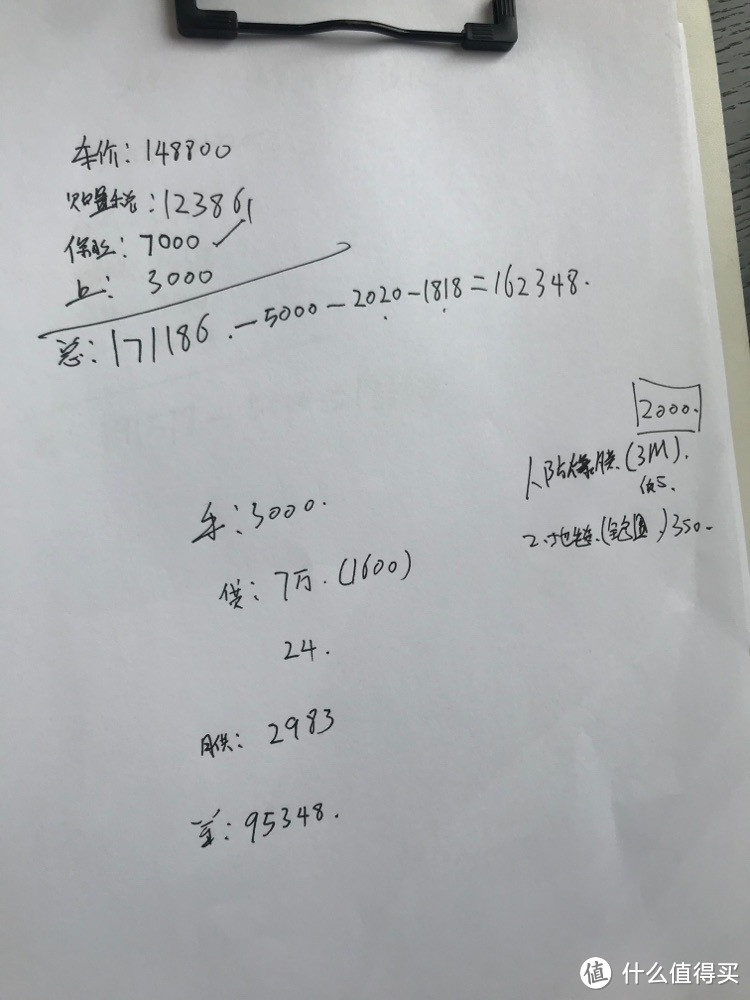 车价：148800
购置税：12386
保险：7000 ✓
上：3000
总：171186.－5000－2020－1818＝162348.
2000.
1、防爆膜.(3M).
手：3000.
2、地毯.(全包围)350.
贷：7万.(1600)
24.
月供：2983
首：95348.
值 什么值得买